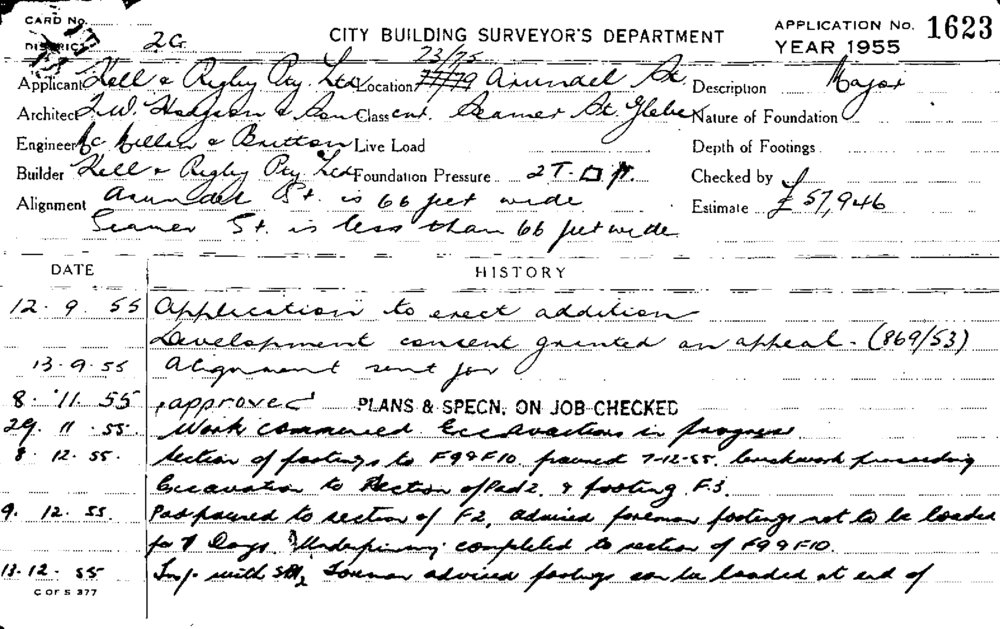 CARD No.
DISTRICT 2G
CITY BUILDING SURVEYOR'S DEPARTMENT
APPLICATION No. 1623
YEAR 1955
73/75
Applicant Kell & Rigby Pty Ltd Location 77/79 Arundel St. Description Major
Architect T.W. Hodgson & Son Class cnr. Seamer St. Glebe Nature of Foundation
Engineer Mc Millan & Britton Live Load Depth of Footings
Builder Kell & Rigby Pty Ltd Foundation Pressure 2T. □ ft. Checked by
Alignment Arundel St. is 66 feet wide Estimate £57,946
Seamer St. is less than 66 feet wide
DATE HISTORY
12. 9. 55 Application to erect addition
Development consent granted on appeal - (869/53)
13.9.55 Alignment sent for
8. 11. 55 approved PLANS & SPECN. ON JOB CHECKED
29. 11. 55. Work commenced. Excavations in progress
8. 12. 55. Section of footings to F9 & F10. poured 7-12-55. brickwork proceeding
Excavation to section of Pad 2. & footing F.3.
9. 12. 55. Pad poured to section of F2, advised foreman footings not to be loaded
for 7 Days. Underpinning completed to section of F9 & F10.
13.12.55 Insp. with foreman advised footings can be loaded at end of
C OF S 377